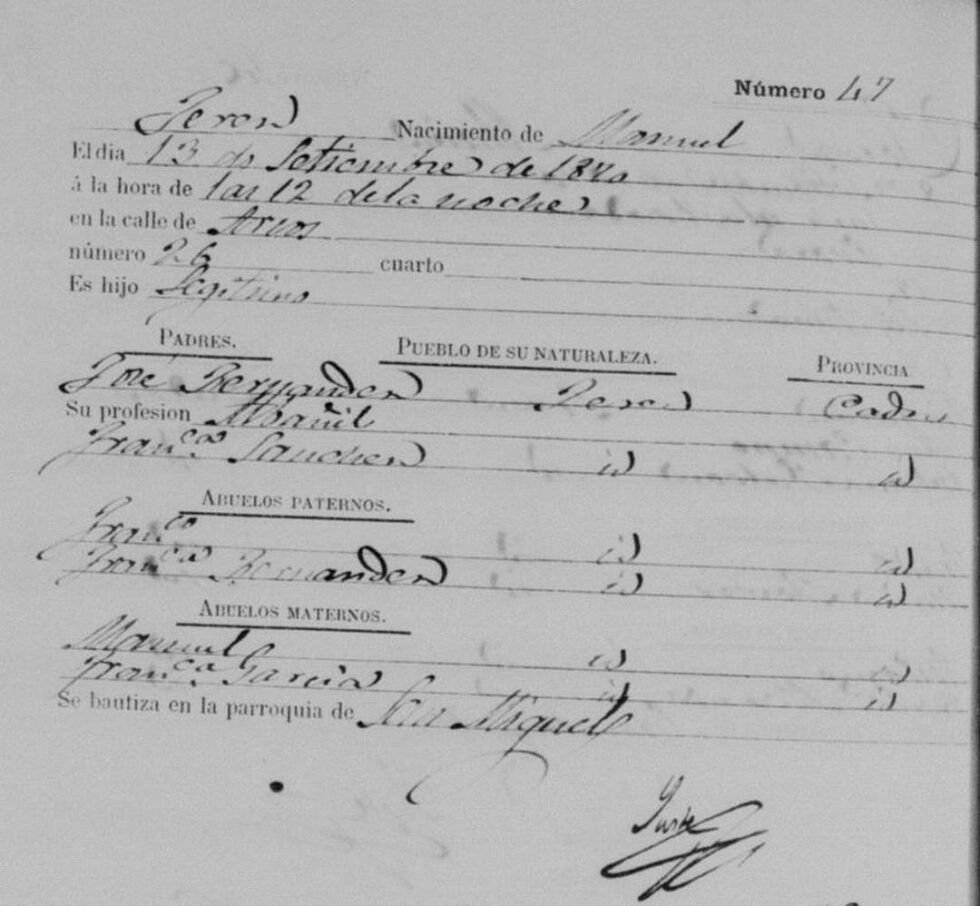 Número 47
Jerez Nacimiento de Manuel
El dia 13 de Setiembre de 1870
á la hora de las 12 de la noche
en la calle de Arcos
número 26 cuarto
Es hijo Legitimo
PADRES. PUEBLO DE SU NATURALEZA. PROVINCIA
José Fernandez Jerez Cadiz
Su profesion Albañil
Franca. Sanchez id id
ABUELOS PATERNOS.
Franco id id
Franca Fernandez id id
ABUELOS MATERNOS.
Manuel id id
Franca. Garcia id id
Se bautiza en la parroquia de San Miguel